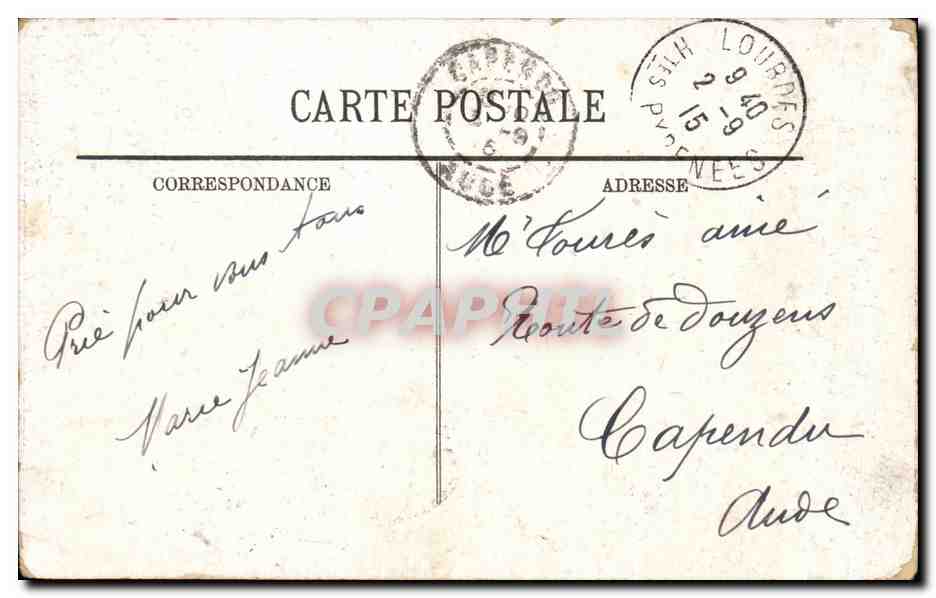 CARTE POSTALE
CAPENDU
AUDE
LOURDES
9 40
2 -9
15
HTES PYRENEES
CORRESPONDANCE
ADRESSE
Prié pour vous tous
Marie Jeanne
Mr Tourès aimé
Route de Douzens
Capendu
Aude
CPAPHIL